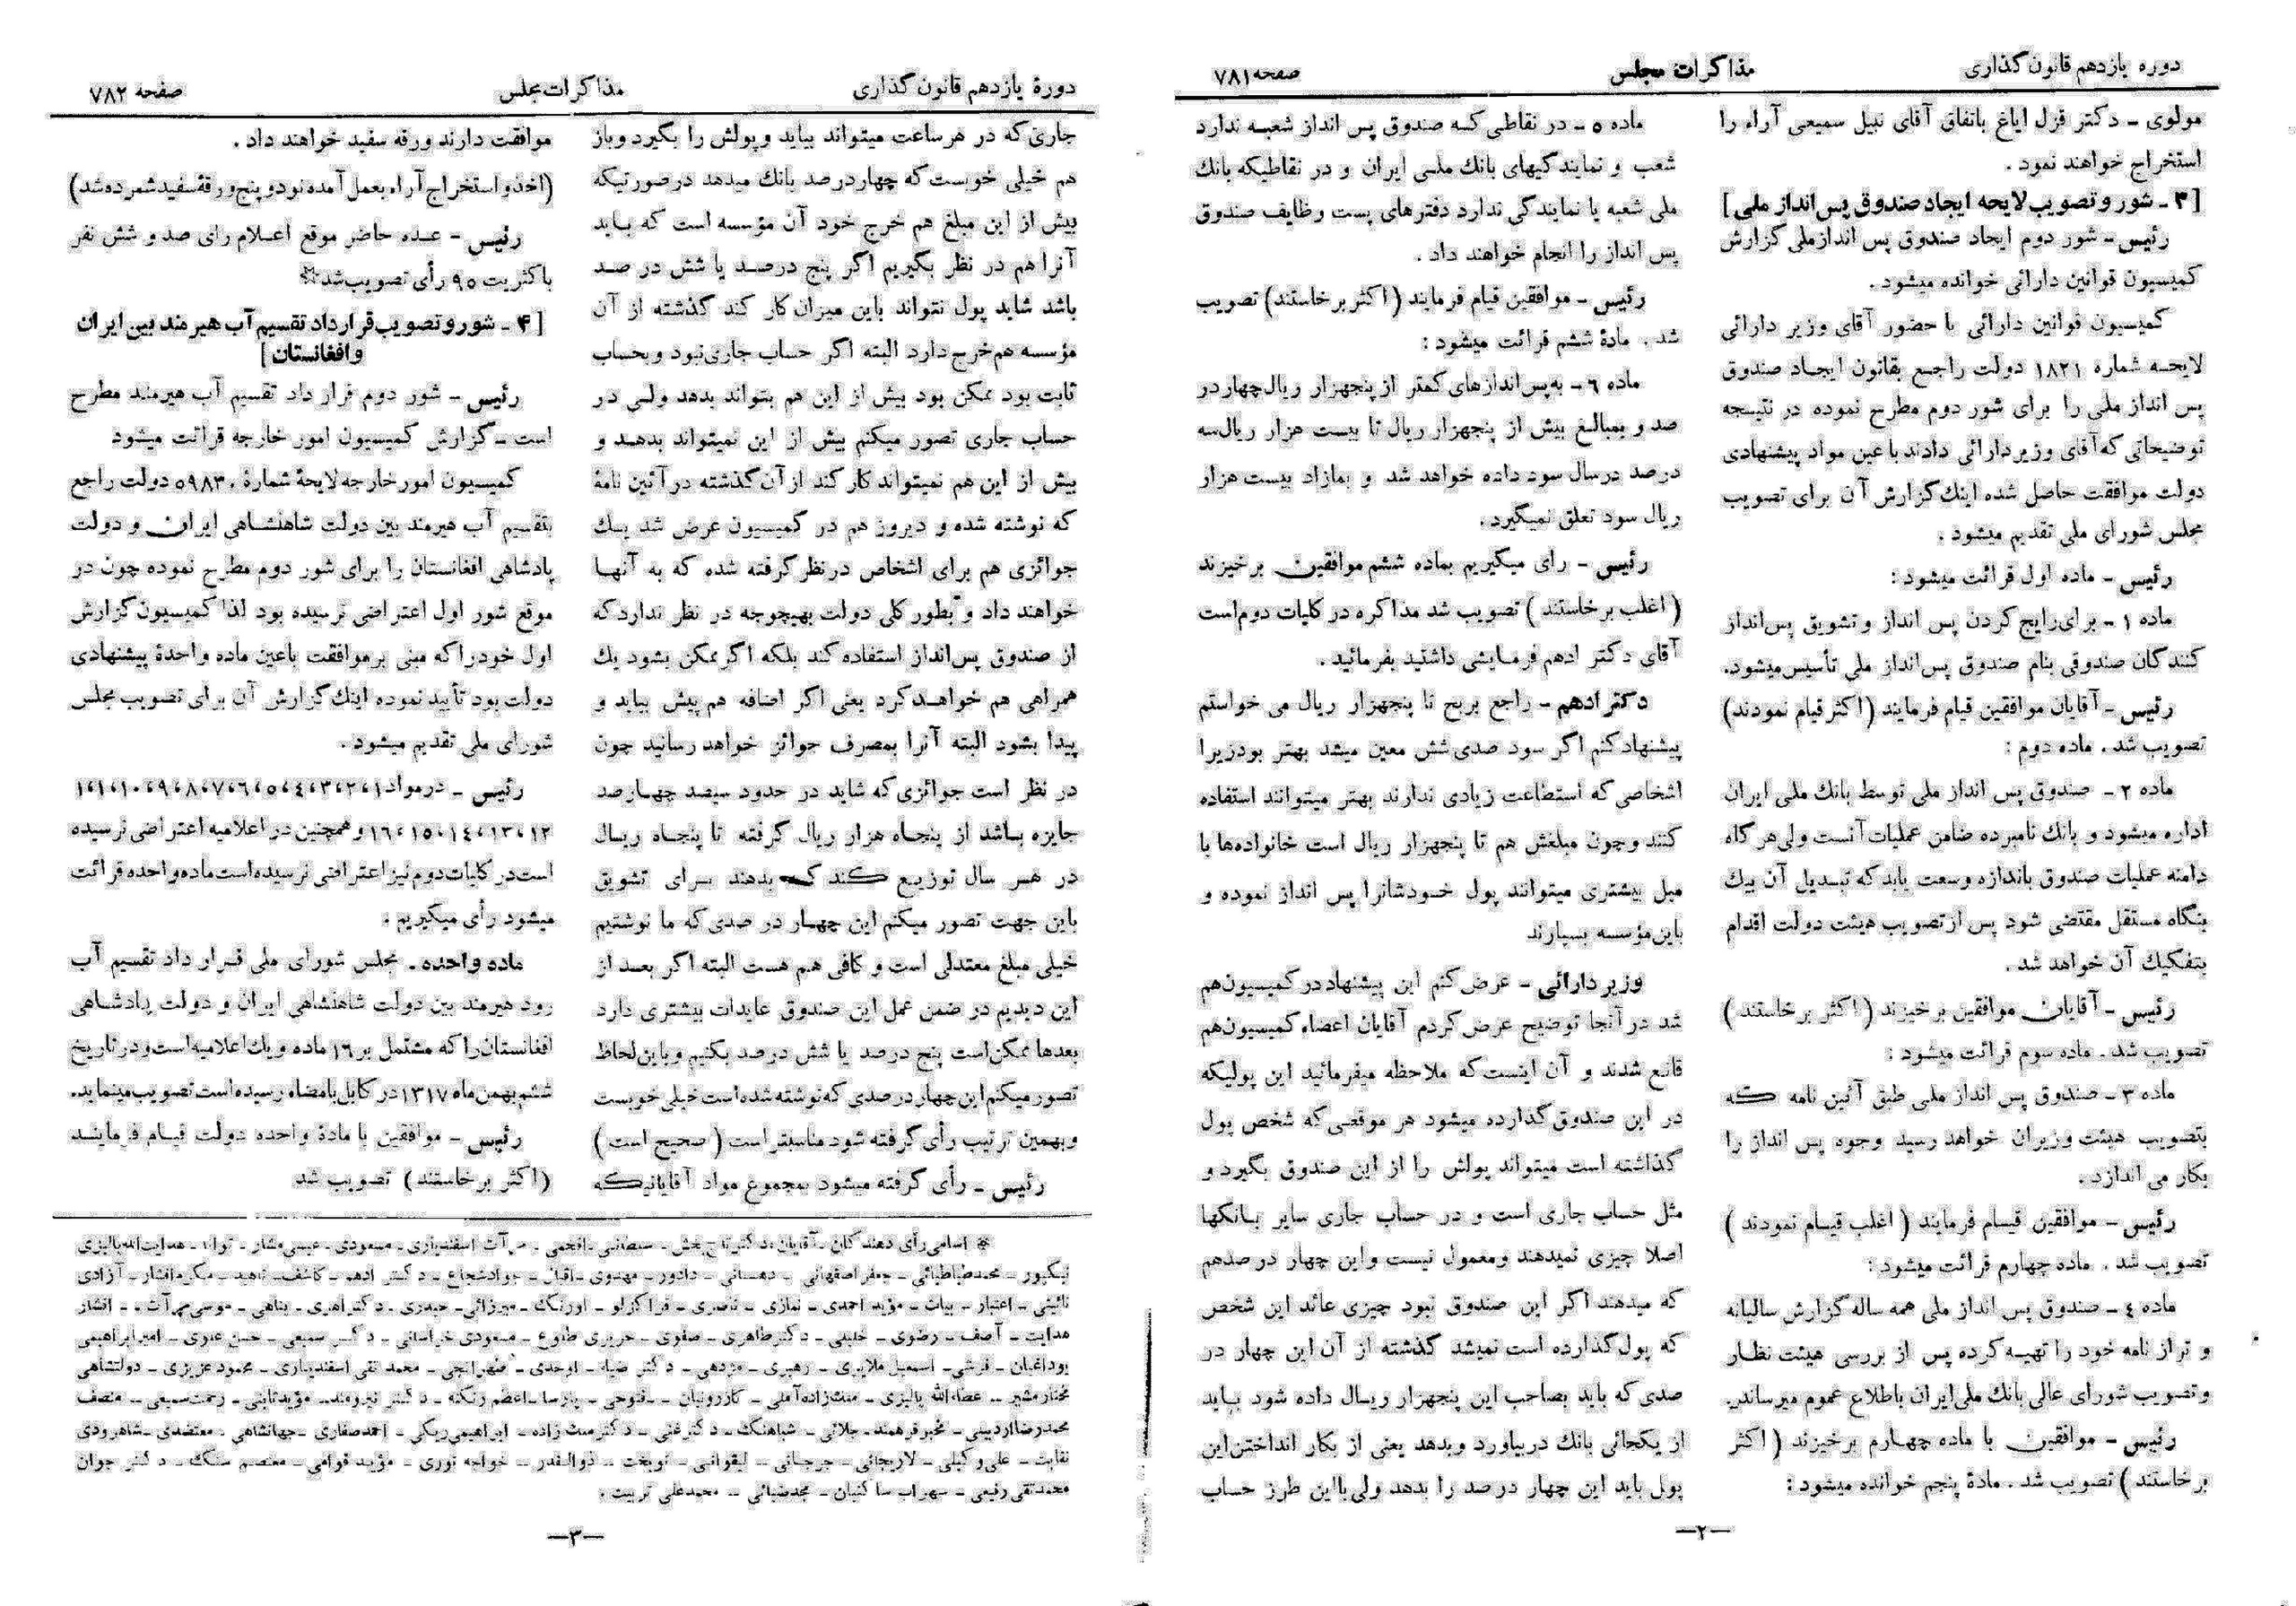 دوره یازدهم قانون گذاری
مذاکرات مجلس
صفحه ۷۸۱
مولوی ـ دکتر قزل ایاغ باتفاق آقای نبیل سمیعی آراء را
استخراج خواهند نمود .
[ ۳ ـ شور و تصویب لایحه ایجاد صندوق پس انداز ملی ]
رئیس ـ شور دوم ایجاد صندوق پس انداز ملی گزارش
کمیسیون قوانین دارائی خوانده میشود .
کمیسیون قوانین دارائی با حضور آقای وزیر دارائی
لایحـه شماره ۱۸۲۱ دولت راجـع بقانون ایجـاد صندوق
پس انداز ملی را برای شور دوم مطرح نموده در نتیـجه
توضیحاتی که آقای وزیر دارائی دادند با عین مواد پیشنهادی
دولت موافقت حاصل شده اینك گزارش آن برای تصویب
مجلس شورای ملی تقدیم میشود .
رئیس ـ ماده اول قرائت میشود :
ماده ۱ ـ برای رایج کردن پس انداز و تشویق پس انداز
کنندگان صندوقی بنام صندوق پس انداز ملی تأسیس میشود.
رئیس ـ آقایان موافقین قیام فرمایند (اکثر قیام نمودند)
تصویب شد . ماده دوم :
ماده ۲ ـ صندوق پس انداز ملی توسط بانك ملی ایران
اداره میشود و بانك نامبرده ضامن عملیات آنست ولی هر گاه
دامنه عملیات صندوق باندازه وسعت یابد که تبـدیل آن بیك
بنگاه مستقل مقتضی شود پس از تصویب هیئت دولت اقدام
بتفکیك آن خواهد شد .
رئیس ـ آقایان موافقین بر خیزند ( اکثر بر خاستند )
تصویب شد . ماده سوم قرائت میشود :
ماده ۳ ـ صندوق پس انداز ملی طبق آئین نامه که
بتصویب هیئت وزیران خواهد رسید وجوه پس انداز را
بکار می اندازد .
رئیس ـ موافقین قیـام فرمایند ( اغلب قیـام نمودند )
تصویب شد . ماده چهارم قرائت میشود :
ماده ٤ ـ صندوق پس انداز ملی همه ساله گزارش سالیانه
و تراز نامه خود را تهیـه کرده پس از بررسی هیئت نظـار
و تصویب شورای عالی بانك ملی ایران باطلاع عموم میرساند.
رئیس ـ موافقین با ماده چهـارم برخیزند ( اکثر
بر خاستند ) تصویب شد . مادۀ پنجم خوانده میشود :
ماده ٥ ـ در نقاطی کـه صندوق پس انداز شعبـه ندارد
شعب و نمایندگیهای بانك ملـی ایران و در نقاطیکه بانك
ملی شعبه یا نمایندگی ندارد دفترهای پست وظایف صندوق
پس انداز را انجام خواهند داد .
رئیس ـ موافقین قیام فرمایند (اکثر بر خاستند) تصویب
شد . مادۀ ششم قرائت میشود :
ماده ٦ ـ به پس اندازهای کمتر از پنجهزار ریال چهار در
صد و بمبالـغ بیش از پنجهزار ریال تا بیست هزار ریال سه
درصد در سال سود داده خواهد شد و بمازاد بیست هزار
ریال سود تعلق نمیگیرد.
رئیس ـ رای میگیریم بماده ششم موافقین بر خیزند
( اغلب بر خاستند ) تصویب شد مذاکره در کلیات دوم است
آقای دکتر ادهم فرمـایشی داشتید بفرمائید .
دکتر ادهم ـ راجع بربح تا پنجهزار ریال می خواستم
پیشنهاد کنم اگر سود صدی شش معین میشد بهتر بود زیرا
اشخاصی که استطاعت زیادی ندارند بهتر میتوانند استفاده
کنند و چون مبلغش هم تا پنجهزار ریال است خانواده‌ها با
میل بیشتری میتوانند پول خـودشانرا پس انداز نموده و
باین مؤسسه بسپارند
وزیر دارائی ـ عرض کنم این پیشنهاد در کمیسیون هم
شد در آنجا توضیح عرض کردم آقایان اعضاء کمیسیون هم
قانـع شدند و آن اینست که ملاحظه میفرمائید این پولیکه
در این صندوق گذارده میشود هر موقعـی که شخص پول
گذاشته است میتواند پولش را از این صندوق بگیرد و
مثل حساب جاری است و در حساب جاری سایر بـانکها
اصلا چیزی نمیدهند و معمول نیست و این چهار در صد هم
که میدهند اگر این صندوق نبود چیزی عائد این شخص
که پول گذارده است نمیشد گذشته از آن این چهار در
صدی که باید بصاحب این پنجهزار ریـال داده شود بـاید
از یکجائی بانك در بیاورد و بدهد یعنی از بکار انداختن این
پول باید این چهار در صد را بدهد ولی با این طرز حساب
—۲—
دورۀ یازدهم قانون گذاری
مذاکرات مجلس
صفحه ۷۸۲
جاری که در هر ساعت میتواند بیاید و پولش را بگیرد و باز
هم خیلی خوبست که چهار درصد بانك میدهد در صورتیکه
بیش از این مبلغ هم خرج خود آن مؤسسه است که بـاید
آنرا هم در نظر بگیریم اگر پنج درصـد یا شش در صـد
باشد شاید پول نتواند باین میزان کار کند گذشته از آن
مؤسسه هم خرج دارد البته اگر حساب جاری نبود و بحساب
ثابت بود ممکن بود بیش از این هم بتواند بدهد ولـی در
حساب جاری تصور میکنم بیش از این نمیتواند بدهـد و
بیش از این هم نمیتواند کار کند از آن گذشته در آئین نامۀ
که نوشته شده و دیروز هم در کمیسیون عرض شد یـك
جوائزی هم برای اشخاص در نظر گرفته شده که به آنهـا
خواهند داد و بطور کلی دولت بهیچوجه در نظر ندارد که
از صندوق پس انداز استفاده کند بلکه اگر ممکن بشود یك
همراهی هم خواهـد کرد یعنی اگر اضافه هم پیش بیاید و
پیدا بشود البته آنرا بمصرف جوائز خواهد رسانید چون
در نظر است جوائزی که شاید در حدود سیصد چهـارصد
جایزه بـاشد از پنجـاه هزار ریال گرفته تا پنجـاه ریـال
در هـر سال توزیـع کنند که بدهند برای تشویق
باین جهت تصور میکنم این چهـار در صدی که ما نوشتیم
خیلی مبلغ معتدلی است و کافی هـم هست البته اگر بعـد از
این دیدیم در ضمن عمل این صندوق عایدات بیشتری دارد
بعدها ممکن است پنج درصد یا شش درصد بکنیم و باین لحاظ
تصور میکنم این چهار در صدی که نوشته شده است خیلی خوبست
و بهمین ترتیب رأی گرفته شود مناسبتر است ( صحیح است )
رئیس ـ رأی گرفته میشود بمجموع مواد آقایانیکه
موافقت دارند ورقه سفید خواهند داد .
(اخذ و استخراج آراء بعمل آمده نود و پنج ورقۀ سفید شمرده شد)
رئیس ـ عـده حاضر موقع اعـلام رای صد و شش نفر
با کثریت ۹٥ رأی تصویب شد※
[ ۴ ـ شور و تصویب قرارداد تقسیم آب هیرمند بین ایران
و افغانستان ]
رئیس ـ شور دوم قرار داد تقسیم آب هیرمند مطرح
است ـ گزارش کمیسیون امور خارجه قرائت میشود
کمیسیون امور خارجه لایحۀ شمارۀ ۵۹۸۳۰ دولت راجع
بتقسیم آب هیرمند بین دولت شاهنشـاهی ایران و دولت
پادشاهی افغانستان را برای شور دوم مطرح نموده چون در
موقع شور اول اعتراضی نرسیده بود لذا کمیسیون گزارش
اول خود را که مبنی بر موافقت با عین ماده واحدۀ پیشنهادی
دولت بود تأیید نموده اینك گزارش آن برای تصویب مجلس
شورای ملی تقدیم میشود .
رئیس ـ در مواد ۱،۲،۳،٤،٥،٦،۷،۸،۹،۱۰،۱۱
۱۲،۱۳،۱٤،۱٥،۱٦ و همچنین در اعلامیه اعتراضی نرسیده
است در کلیات دوم نیز اعتراضی نرسیده است ماده واحده قرائت
میشود رأی میگیریم .
ماده واحده . مجلس شورای ملی قـرار داد تقسیم آب
رود هیرمند بین دولت شاهنشاهی ایران و دولت پادشـاهی
افغانستان را که مشتمل بر ۱٦ ماده و یك اعلامیه است و در تاریخ
ششم بهمن ماه ۱۳۱۷ در کابل بامضاء رسیده است تصویب مینماید.
رئیس ـ موافقین با مادۀ واحده دولت قیـام فرماینـد
(اکثر بر خاستند) تصویب شد
※ اسامی رأی دهندگان ـ آقایان: دکتر تاج بخش ـ سمیعی ـ مرآت اسفندیاری ـ مسعودی ـ عیسی مشار ـ توانا ـ هدایت‌اله پالیزی
نیکپور ـ محمد طباطبائی ـ جعفر اصفهانی ـ دهستانی ـ دادور ـ مهدوی ـ اقبال ـ جواد شجاع ـ دکتر ادهم ـ کاشف ـ ناهید ـ مکرم افشار ـ آزادی
نائینی ـ اعتبار ـ بیات ـ مؤید احمدی ـ نمازی ـ ناصری ـ قراگزلو ـ اورنگ ـ میرزائی ـ حیدری ـ دکتر اهری ـ پناهی ـ موسی مرآت ـ افشار
هدایت ـ آصف ـ رضوی ـ خلیلی ـ دکتر طاهری ـ صفوی ـ حریری طلوع ـ مسعودی خراسانی ـ دکتر سمیعی ـ حسن علوی ـ امیر ابراهیمی
بوداغیان ـ قرشی ـ اسمعیل ملایری ـ رهبری ـ مژدهی ـ دکتر ضیاء ـ اوحدی ـ طهرانچی ـ محمد تقی اسفندیاری ـ محمود عزیزی ـ دولتشاهی
مختار مشیر ـ عطاءالله پالیزی ـ ملك‌زاده آملی ـ کازرونیان ـ فتوحی ـ پارسا ـ اعظم زنگنه ـ دکتر نیرومند ـ مؤید ثابتی ـ رحمت سمیعی ـ منصف
محمد رضا اردبیلی ـ مخبر فرهمند ـ جلائی ـ شباهنگ ـ دکتر غنی ـ دکتر ملك زاده ـ ابراهیمی ریگی ـ احمد صفاری ـ جهانشاهی ـ معتضدی ـ شاهرودی
نقابت ـ علی وکیلی ـ لاریجانی ـ جرجانی ـ لیقوانی ـ نوبخت ـ ذوالقدر ـ خواجه نوری ـ مؤید قوامی ـ معتصم سنگ ـ دکتر جوان
محمد تقی رفیعی ـ سهراب ساکنیان ـ مجد ضیائی ـ محمد علی تربیت .
—۳—